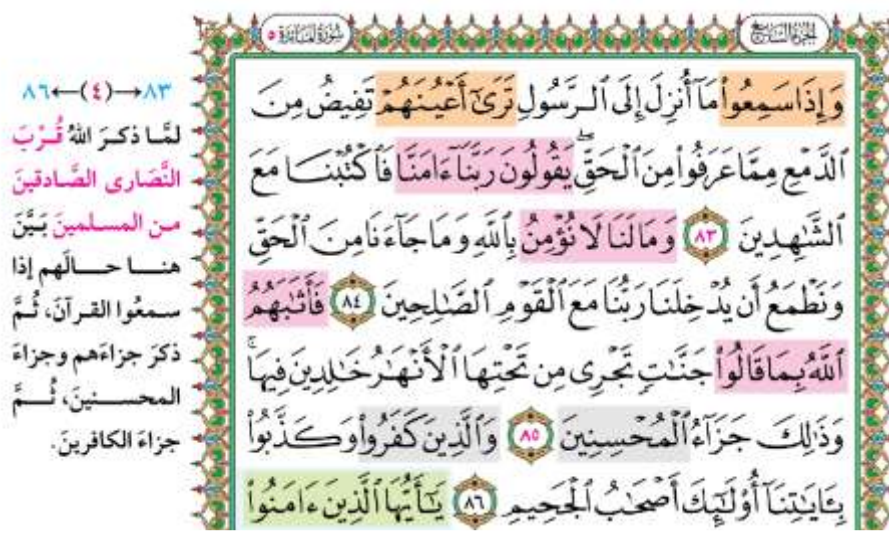 الجزء السابع
سورة المائدة ٥
وَإِذَا سَمِعُوا۟ مَآ أُنزِلَ إِلَى ٱلرَّسُولِ تَرَىٰٓ أَعْيُنَهُمْ تَفِيضُ مِنَ
ٱلدَّمْعِ مِمَّا عَرَفُوا۟ مِنَ ٱلْحَقِّ ۖ يَقُولُونَ رَبَّنَآ ءَامَنَّا فَٱكْتُبْنَا مَعَ
ٱلشَّٰهِدِينَ ٨٣ وَمَا لَنَا لَا نُؤْمِنُ بِٱللَّهِ وَمَا جَآءَنَا مِنَ ٱلْحَقِّ
وَنَطْمَعُ أَن يُدْخِلَنَا رَبُّنَا مَعَ ٱلْقَوْمِ ٱلصَّٰلِحِينَ ٨٤ فَأَثَٰبَهُمُ
ٱللَّهُ بِمَا قَالُوا۟ جَنَّٰتٍ تَجْرِى مِن تَحْتِهَا ٱلْأَنْهَٰرُ خَٰلِدِينَ فِيهَا ۚ
وَذَٰلِكَ جَزَآءُ ٱلْمُحْسِنِينَ ٨٥ وَٱلَّذِينَ كَفَرُوا۟ وَكَذَّبُوا۟
بِـَٔايَٰتِنَآ أُو۟لَٰٓئِكَ أَصْحَٰبُ ٱلْجَحِيمِ ٨٦ يَٰٓأَيُّهَا ٱلَّذِينَ ءَامَنُوا۟
٨٣→(٤)←٨٦
لمَّا ذكرَ اللهُ قُرْبَ
النَّصَارى الصَّادقينَ
من المسلمينَ بَيَّنَ
هنا حالَهم إذا
سمعُوا القرآنَ، ثُمَّ
ذكرَ جزاءَهم وجزاءَ
المحسنينَ، ثُمَّ
جزاءَ الكافرينَ.